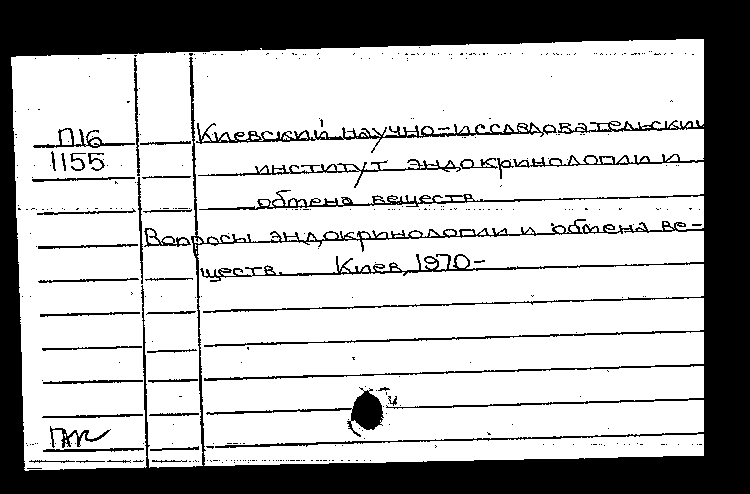 П16
1155
Киевский научно-исследовательский
институт эндокринологии и
обмена веществ.
Вопросы эндокринологии и обмена ве-
ществ. Киев, 1970-